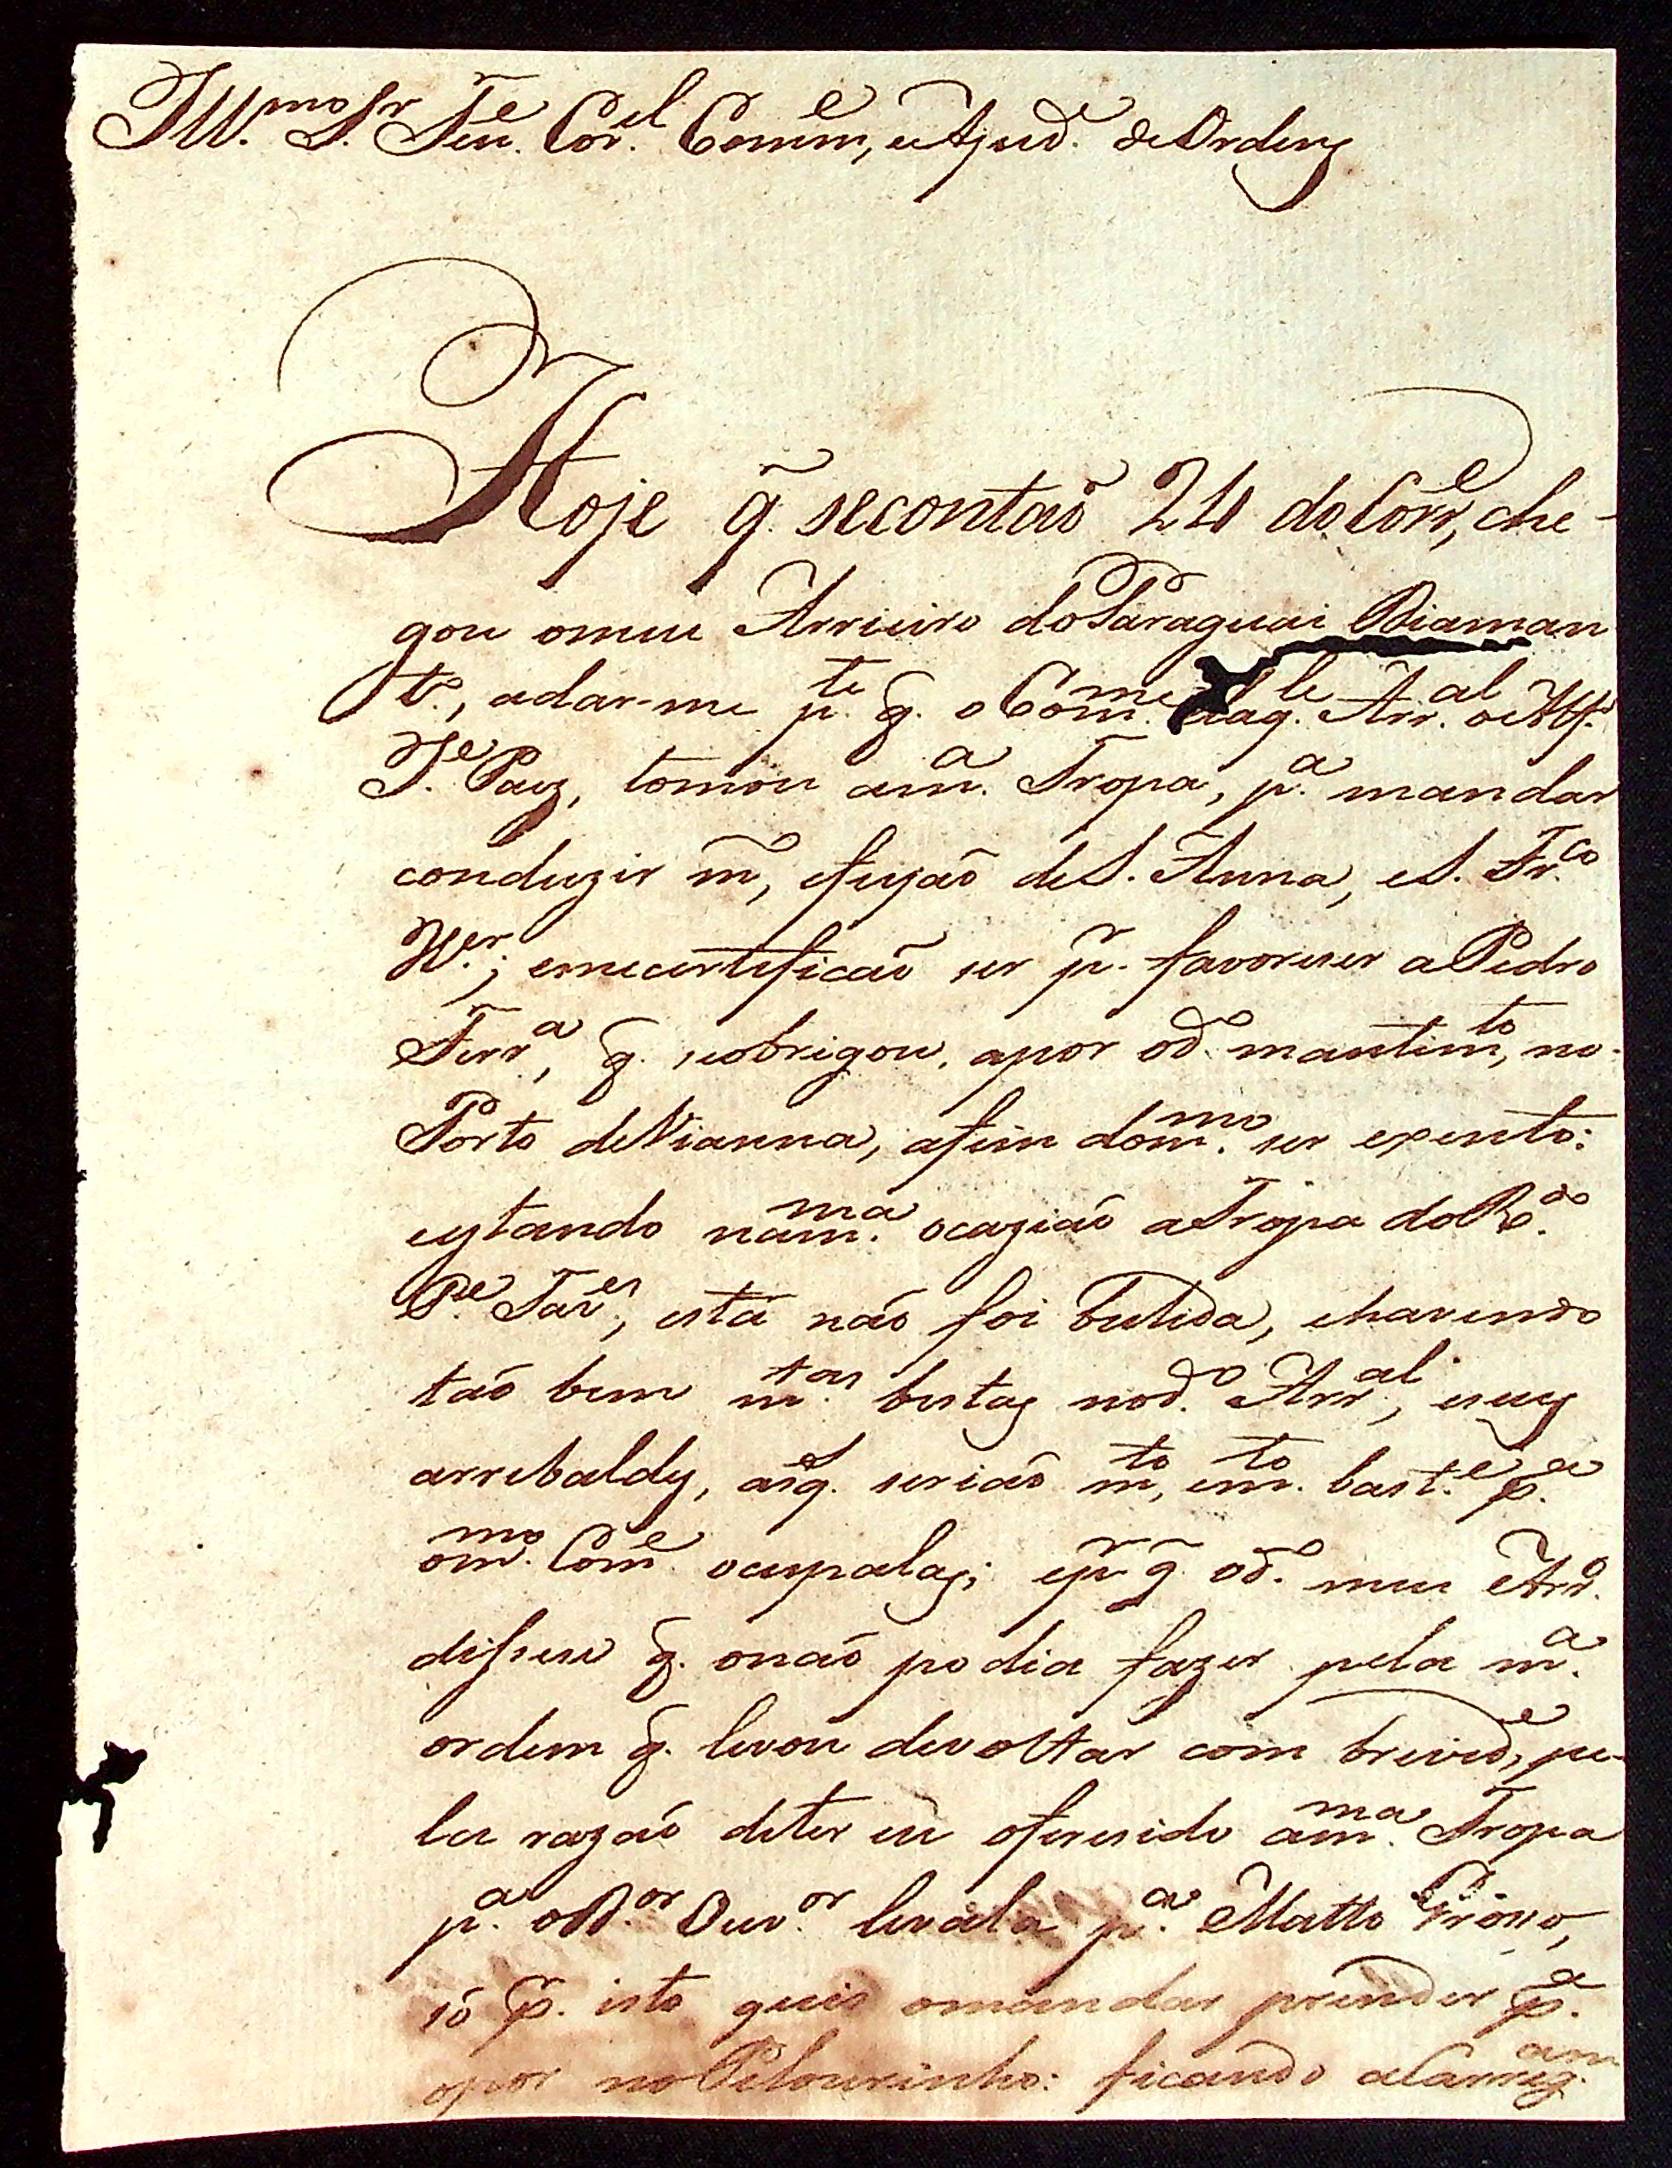 Ill.mo Sr. Ten.e Cor.el Comm.e, e Ajud.e de Ordens
Hoje q̃ se contaõ 24 do Corr.e, che-
gou o meu Arrieiro do Paraguai Diaman
t.o, a dar-me p.te q̃. o Com.me daq.le Arr.al o Alf.
J.e Paes, tomou a m.a Tropa, p.a mandar
conduzir m.o, e feijaõ de S. Anna, e S. Fr.co
X.er; e me certeficaõ ser p.r favoreser a Pedro
Ferr.a, q̃. se obrigou, a por o d.o mantim.to, no-
Porto de Vianna, afim do m.mo ser exento:
estando na m.ma ocaziaõ a Tropa do R.do
P.e Tav.es, esta naõ foi bulida, e havendo
taõ bem m.tas bestas no d.o Arr.al, e seus
arrebaldes, as q̃. seriaõ m.to, e m.to bast.e p.a
o m.mo Com.e ocupalas; e p.r q̃ o d.o meu Arr.o
disese q̃. o naõ podia fazer pela m.a
ordem q̃. levou de voltar com brevid.e, pe-
la razaõ de ter eu oferesido a m.ma Tropa
p.a o D.or Ouv.or levala p.a Matto Groso,
só p.r isto quis o mandar prender p.a
o por no Pelourinho: ficando a Carreg.am